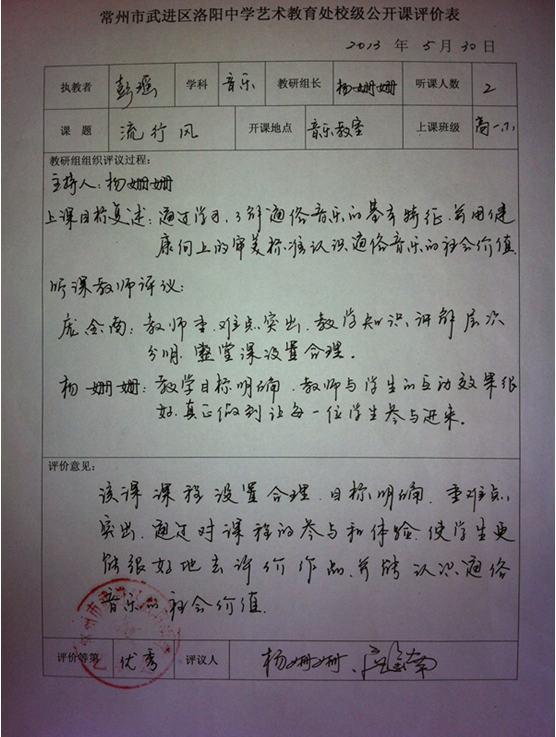 常州市武进区洛阳中学艺术教育处校级公开课评价表
2013 年 5 月 30 日
执教者 彭瑶 学科 音乐 教研组长 杨姗姗 听课人数 2
课 题 流行风 开课地点 音乐教室 上课班级 高一.
教研组组织评议过程：
主持人：杨姗姗
上课目标复述：通过学习，了解通俗音乐的基本特征，并用健
康向上的审美标准认识通俗音乐的社会价值
听课教师评议：
庞金南：教师重、难点突出，教学知识讲解层次
分明，整堂课设置合理。
杨姗姗：教学目标明确，教师与学生的互动效果很
好，真正做到让每一位学生参与进来。
评价意见：
该课课程设置合理，目标明确，重难点
突出，通过对课程的参与和体验，使学生更
能很好地去评价作品，并能认识通俗
音乐的社会价值.
评价等第 优秀 评议人 杨姗姗、庞金南
常州市武